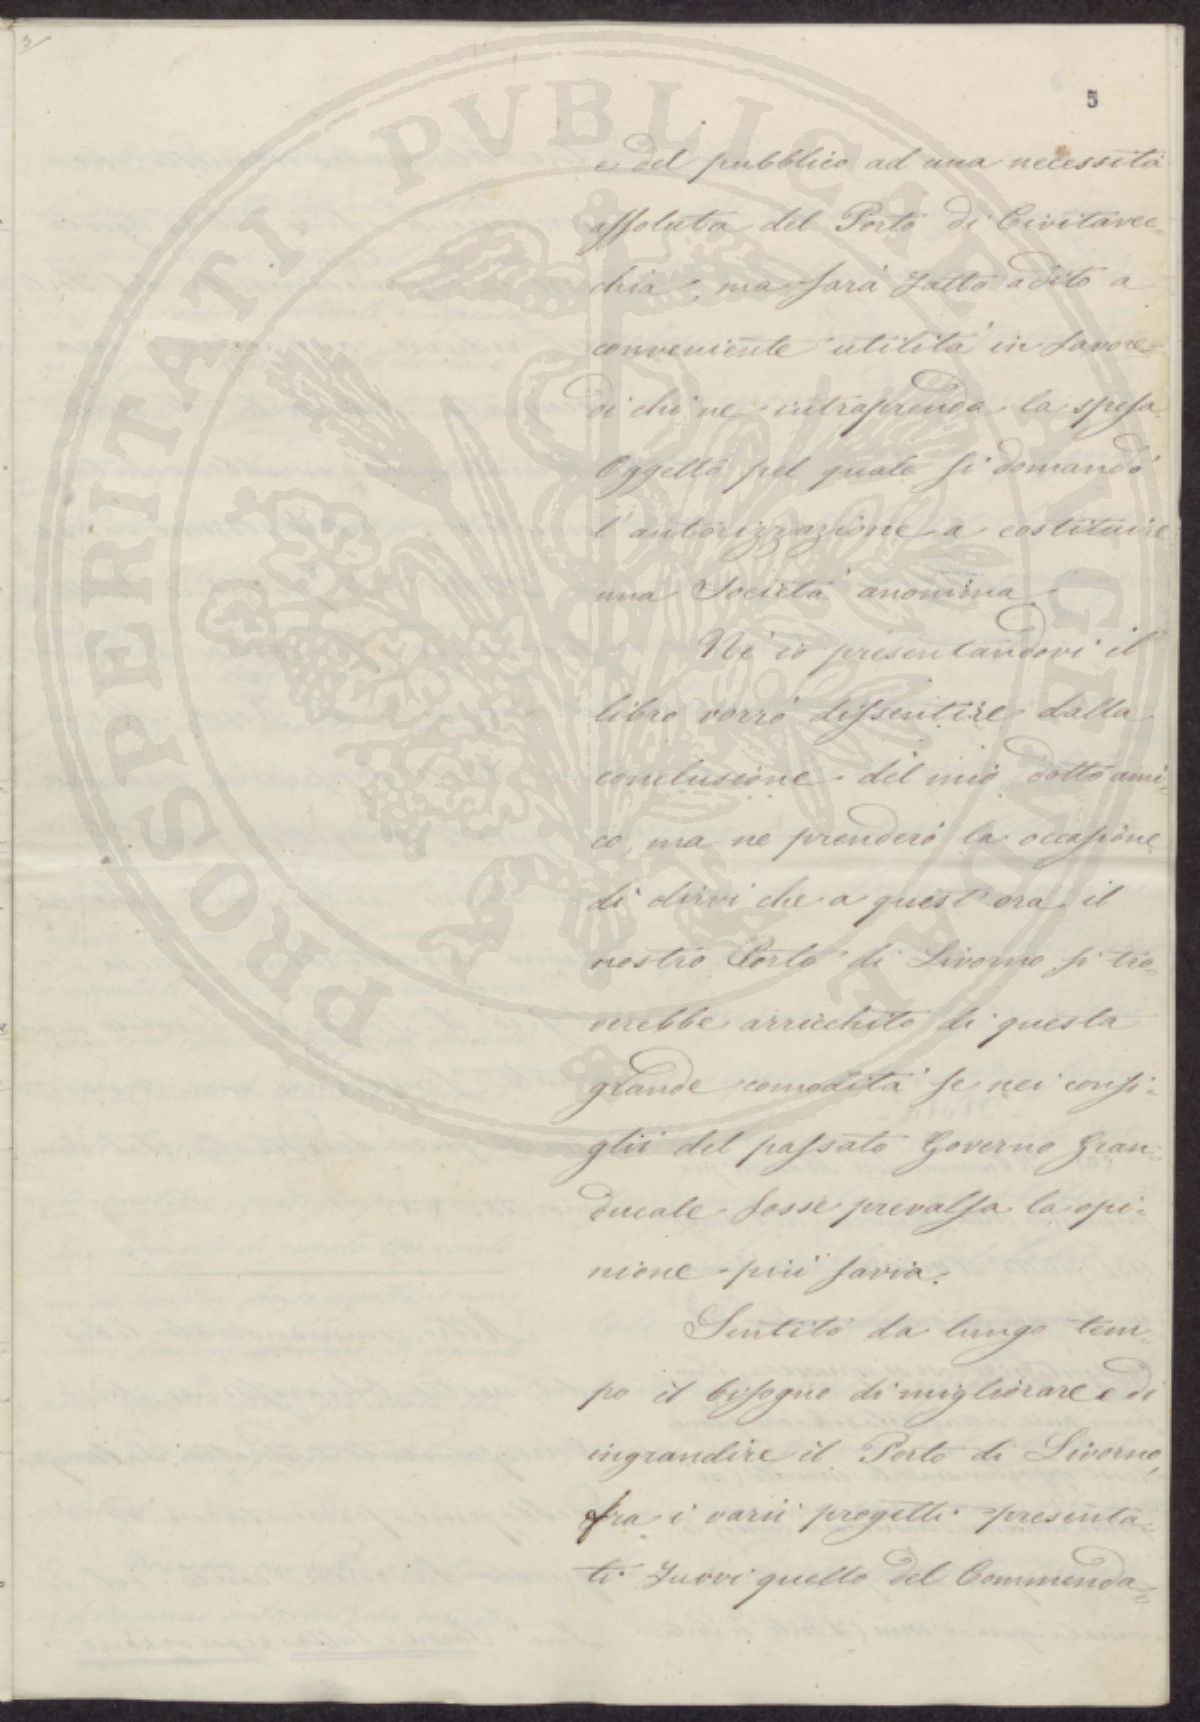 3
5
PROSPERITATI PUBLICAE AUGENDAE
e del pubblico ad una necessità
assoluta del Porto di Civitavec=
chia, ma sarà fatto adito a
conveniente utilità in favore
di chi ne intraprenda la spesa.
Oggetto pel quale si domandò
l'autorizzazione a costituire
una Società anonima.
Nè io presentandovi il
libro vorrò dissentire dalla
conclusione del mio dotto ami=
co, ma ne prenderò la occasione
di dirvi che a quest'ora il
nostro Porto di Livorno si tro=
verebbe arricchito di questa
grande comodità se nei consi=
glii del passato Governo Gran=
ducale fosse prevalsa la opi=
nione più savia.
Sentito da lungo tem=
po il bisogno di migliorare e di
ingrandire il Porto di Livorno,
fra i varii progetti presenta=
ti fuvvi quello del Commenda=